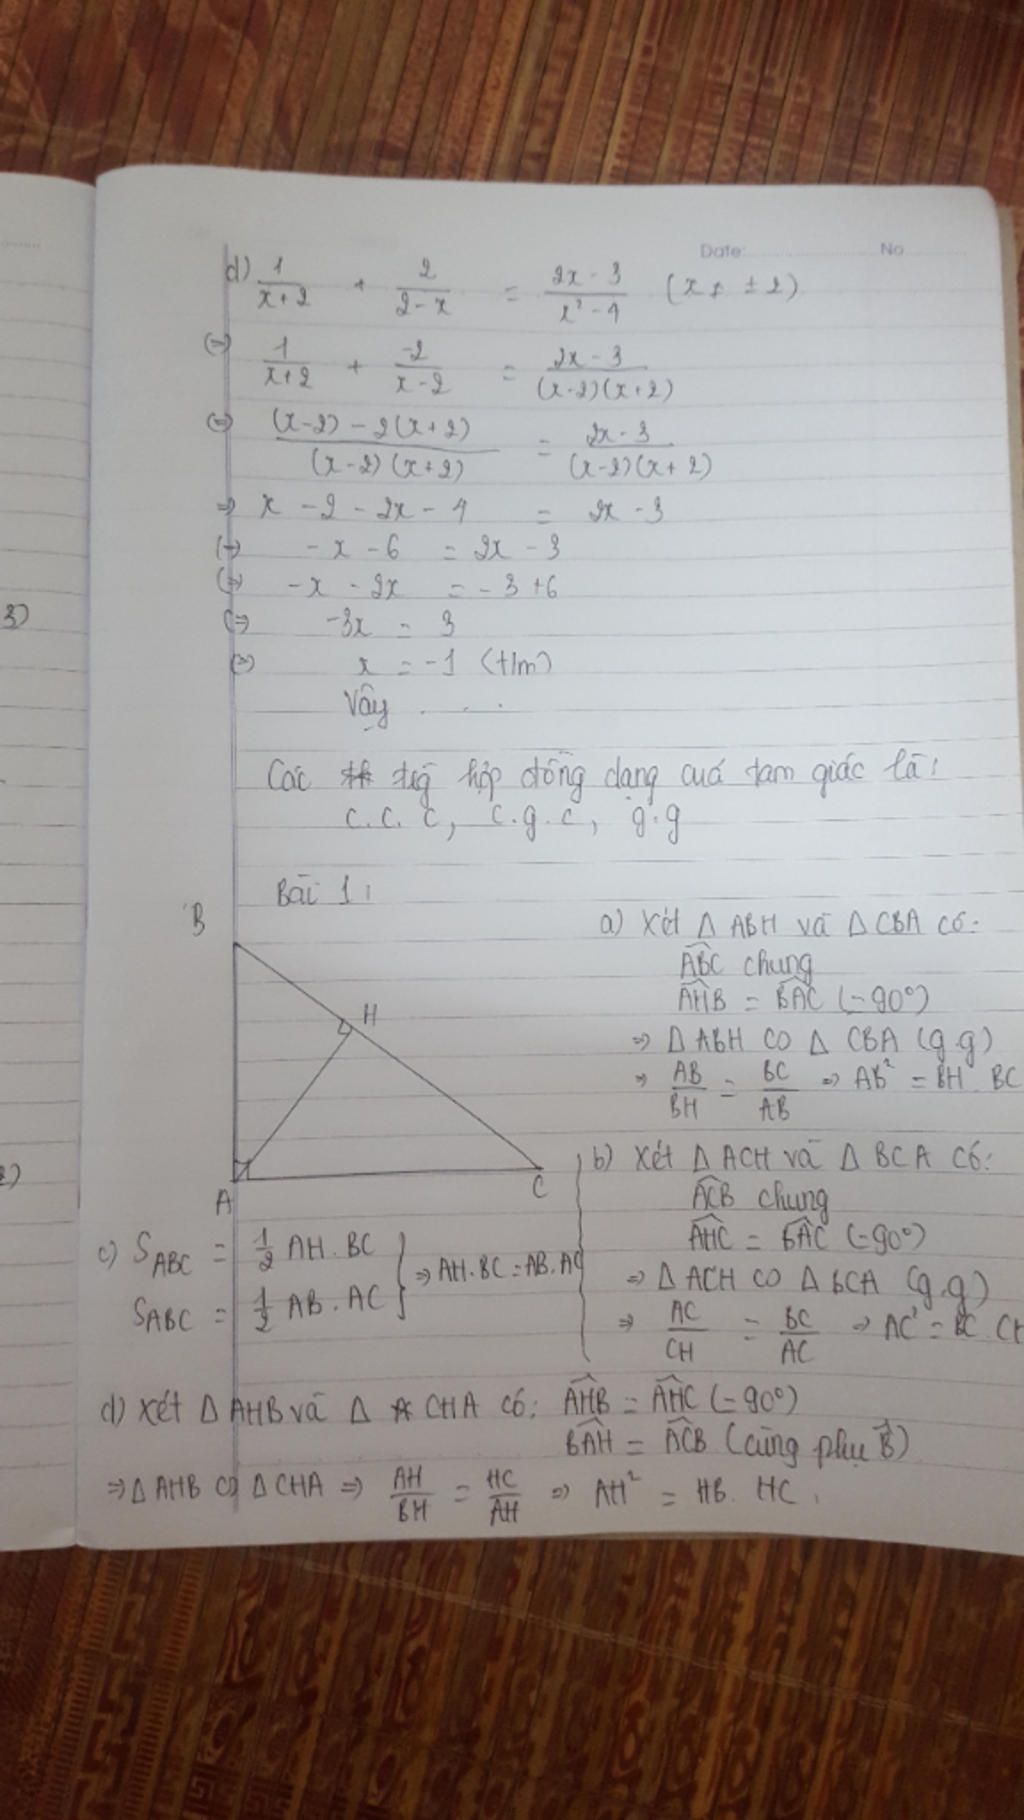 Date: No
d) 1/(x+2) + 2/(2-x) = (2x-3)/(x²-4) (x ≠ ±2)
(=) 1/(x+2) + -2/(x-2) = (2x-3)/((x-2)(x+2))
(=) ((x-2)-2(x+2))/((x-2)(x+2)) = (2x-3)/((x-2)(x+2))
=> x - 2 - 2x - 4 = 2x - 3
(=) -x - 6 = 2x - 3
(=) -x - 2x = -3 + 6
(=) -3x = 3
(=) x = -1 (t/m)
Vậy . . .
3)
Các trg hợp đồng dạng cuả tam giác là:
c.c.c, c.g.c, g.g
Bài 1:
B
H
A
C
a) Xét Δ ABH và Δ CBA có:
ABC chung
AHB = BAC (=90°)
=> Δ ABH ∽ Δ CBA (g.g)
=> AB/BH = BC/AB => AB² = BH. BC
2)
b) Xét Δ ACH và Δ BCA có:
ACB chung
AHC = BAC (=90°)
=> Δ ACH ∽ Δ BCA (g.g)
=> AC/CH = BC/AC => AC² = BC. CH
c) S_ABC = 1/2 AH.BC
S_ABC = 1/2 AB.AC } => AH.BC = AB.AC
d) Xét Δ AHB và Δ CHA có: AHB = AHC (=90°)
BAH = ACB (cùng phụ B)
=> Δ AHB ∽ Δ CHA => AH/BH = HC/AH => AH² = HB. HC.